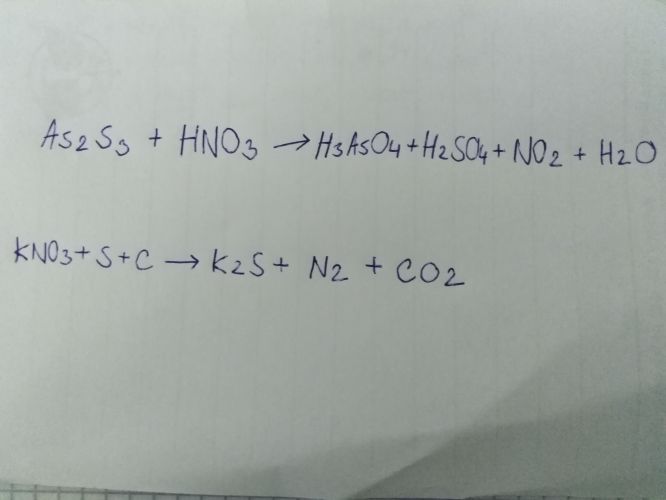 As2S3 + HNO3 → H3AsO4 + H2SO4 + NO2 + H2O
KNO3 + S + C → K2S + N2 + CO2